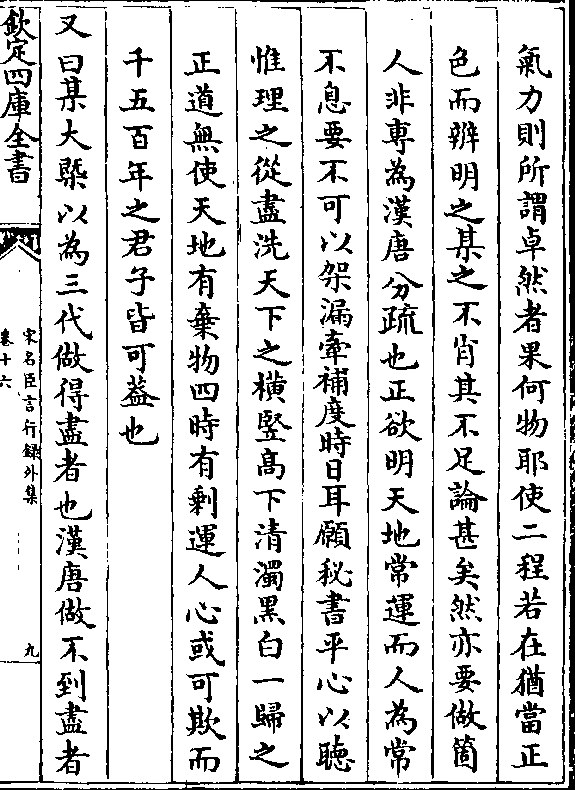 氣力則所謂卓然者果何物耶使二程若在猶當正
色而辨明之某之不肖其不足論甚矣然亦要做箇
人非專為漢唐分疏也正欲明天地常運而人為常
不息要不可以架漏牽補度時日耳願秘書平心以聽
惟理之從盡洗天下之橫豎高下清濁黑白一歸之
正道無使天地有棄物四時有剩運人心或可欺而
千五百年之君子皆可葢也
又曰某大槩以為三代做得盡者也漢唐做不到盡者
欽定四庫全書
宋名臣言行録外集
卷十六
九